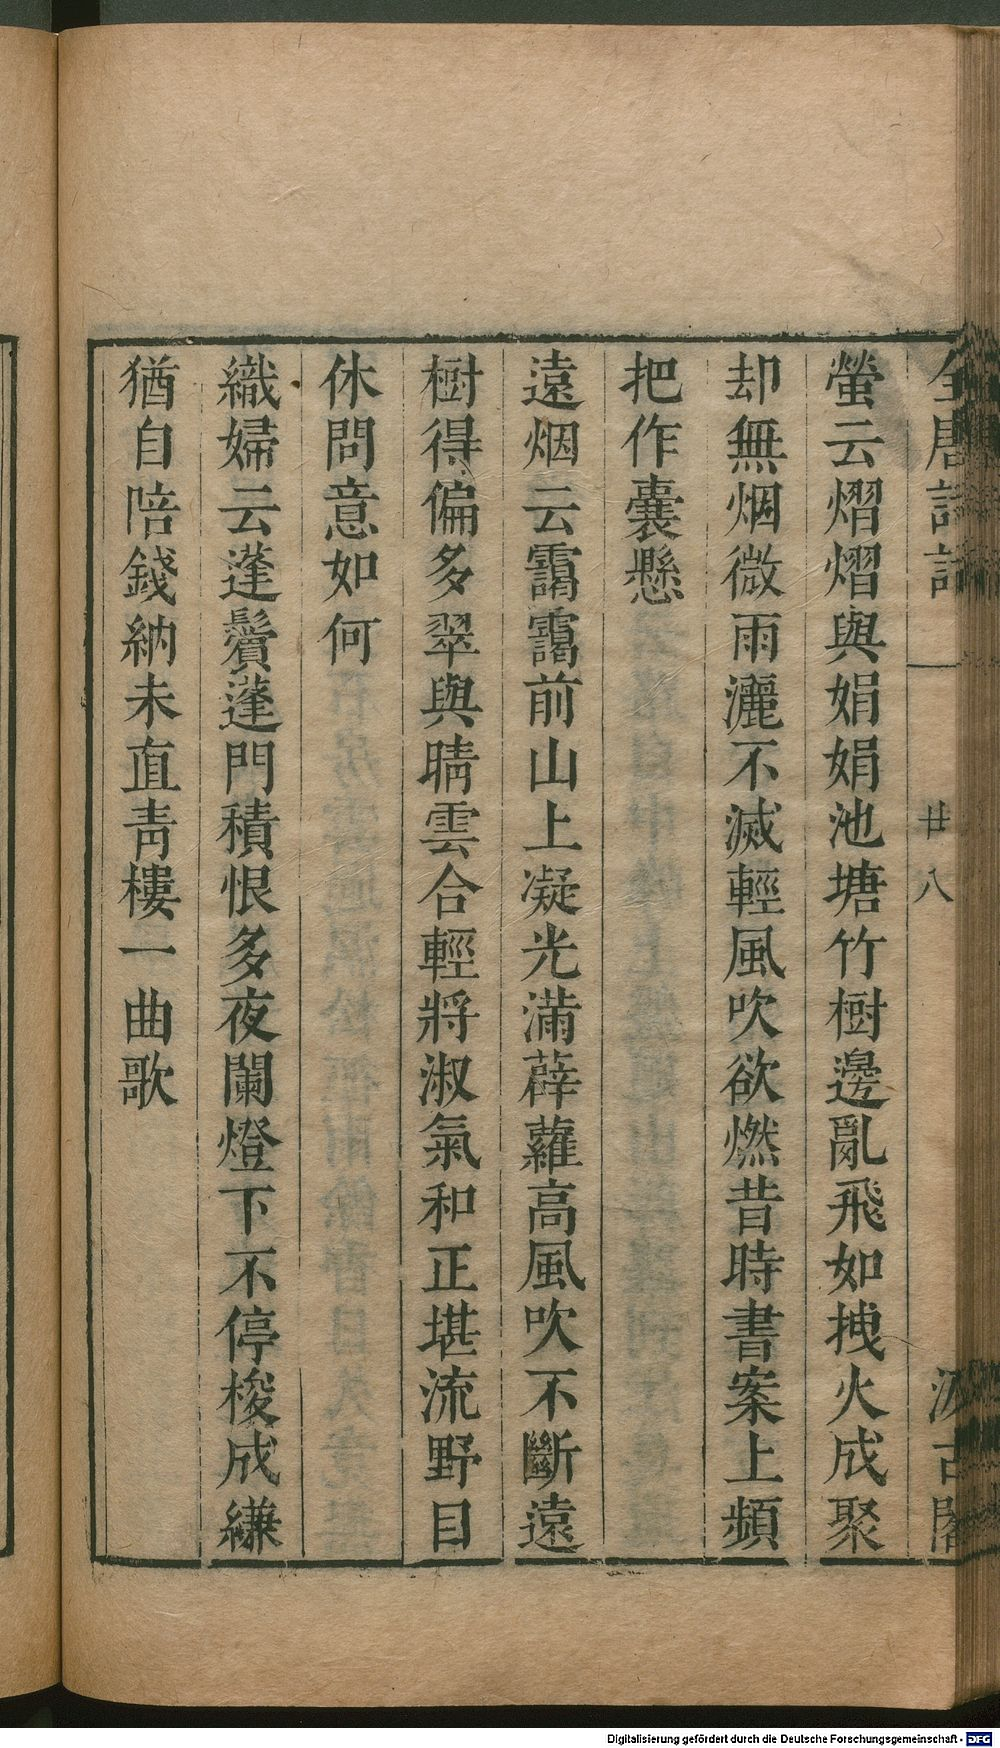 全唐詩話 廿八 汲古閣
螢云熠熠與娟娟池塘竹樹邊亂飛如拽火成聚
却無烟微雨灑不滅輕風吹欲燃昔時書案上頻
把作囊懸
遠烟云靄靄前山上凝光滿薜蘿高風吹不斷遠
樹得偏多翠與晴雲合輕將淑氣和正堪流野目
休問意如何
織婦云蓬鬢蓬門積恨多夜闌燈下不停梭成縑
猶自陪錢納未直青樓一曲歌
Digitalisierung gefördert durch die Deutsche Forschungsgemeinschaft - DFG